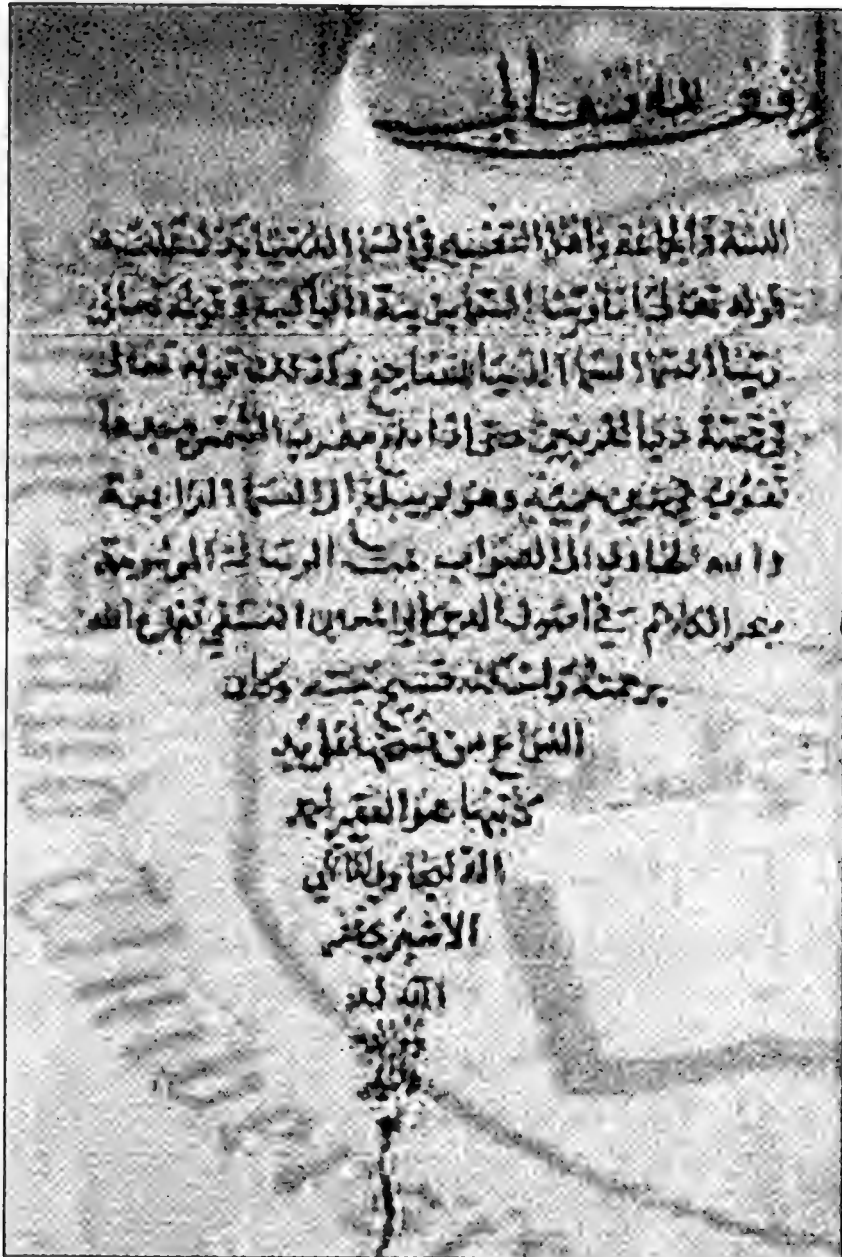 وقف لله تعالى
السنة والجماعة واهل التفسير في السما الدنيا
قوله تعالى انا زينا السما بزينة الكواكب وقوله تعالى
وزينا السما الدنيا بمصابيح وكذلك قوله تعالى
في قصة ذي القرنين حتى اذا بلغ مغرب الشمس وجدها
تغرب في عين حمئة وهو لم يبلغ الى السما الرابعة
والله الهادي الى الصواب تمت الرسالة الموسومة
ببحر الكلام في اصول الدين لابي المعين النسفي تغمده الله
برحمته واسكنه فسيح جنته وكان
الفراغ من نسخها على يد
كاتبها الفقير احمد
المالكي
الاشعري غفر
الله له